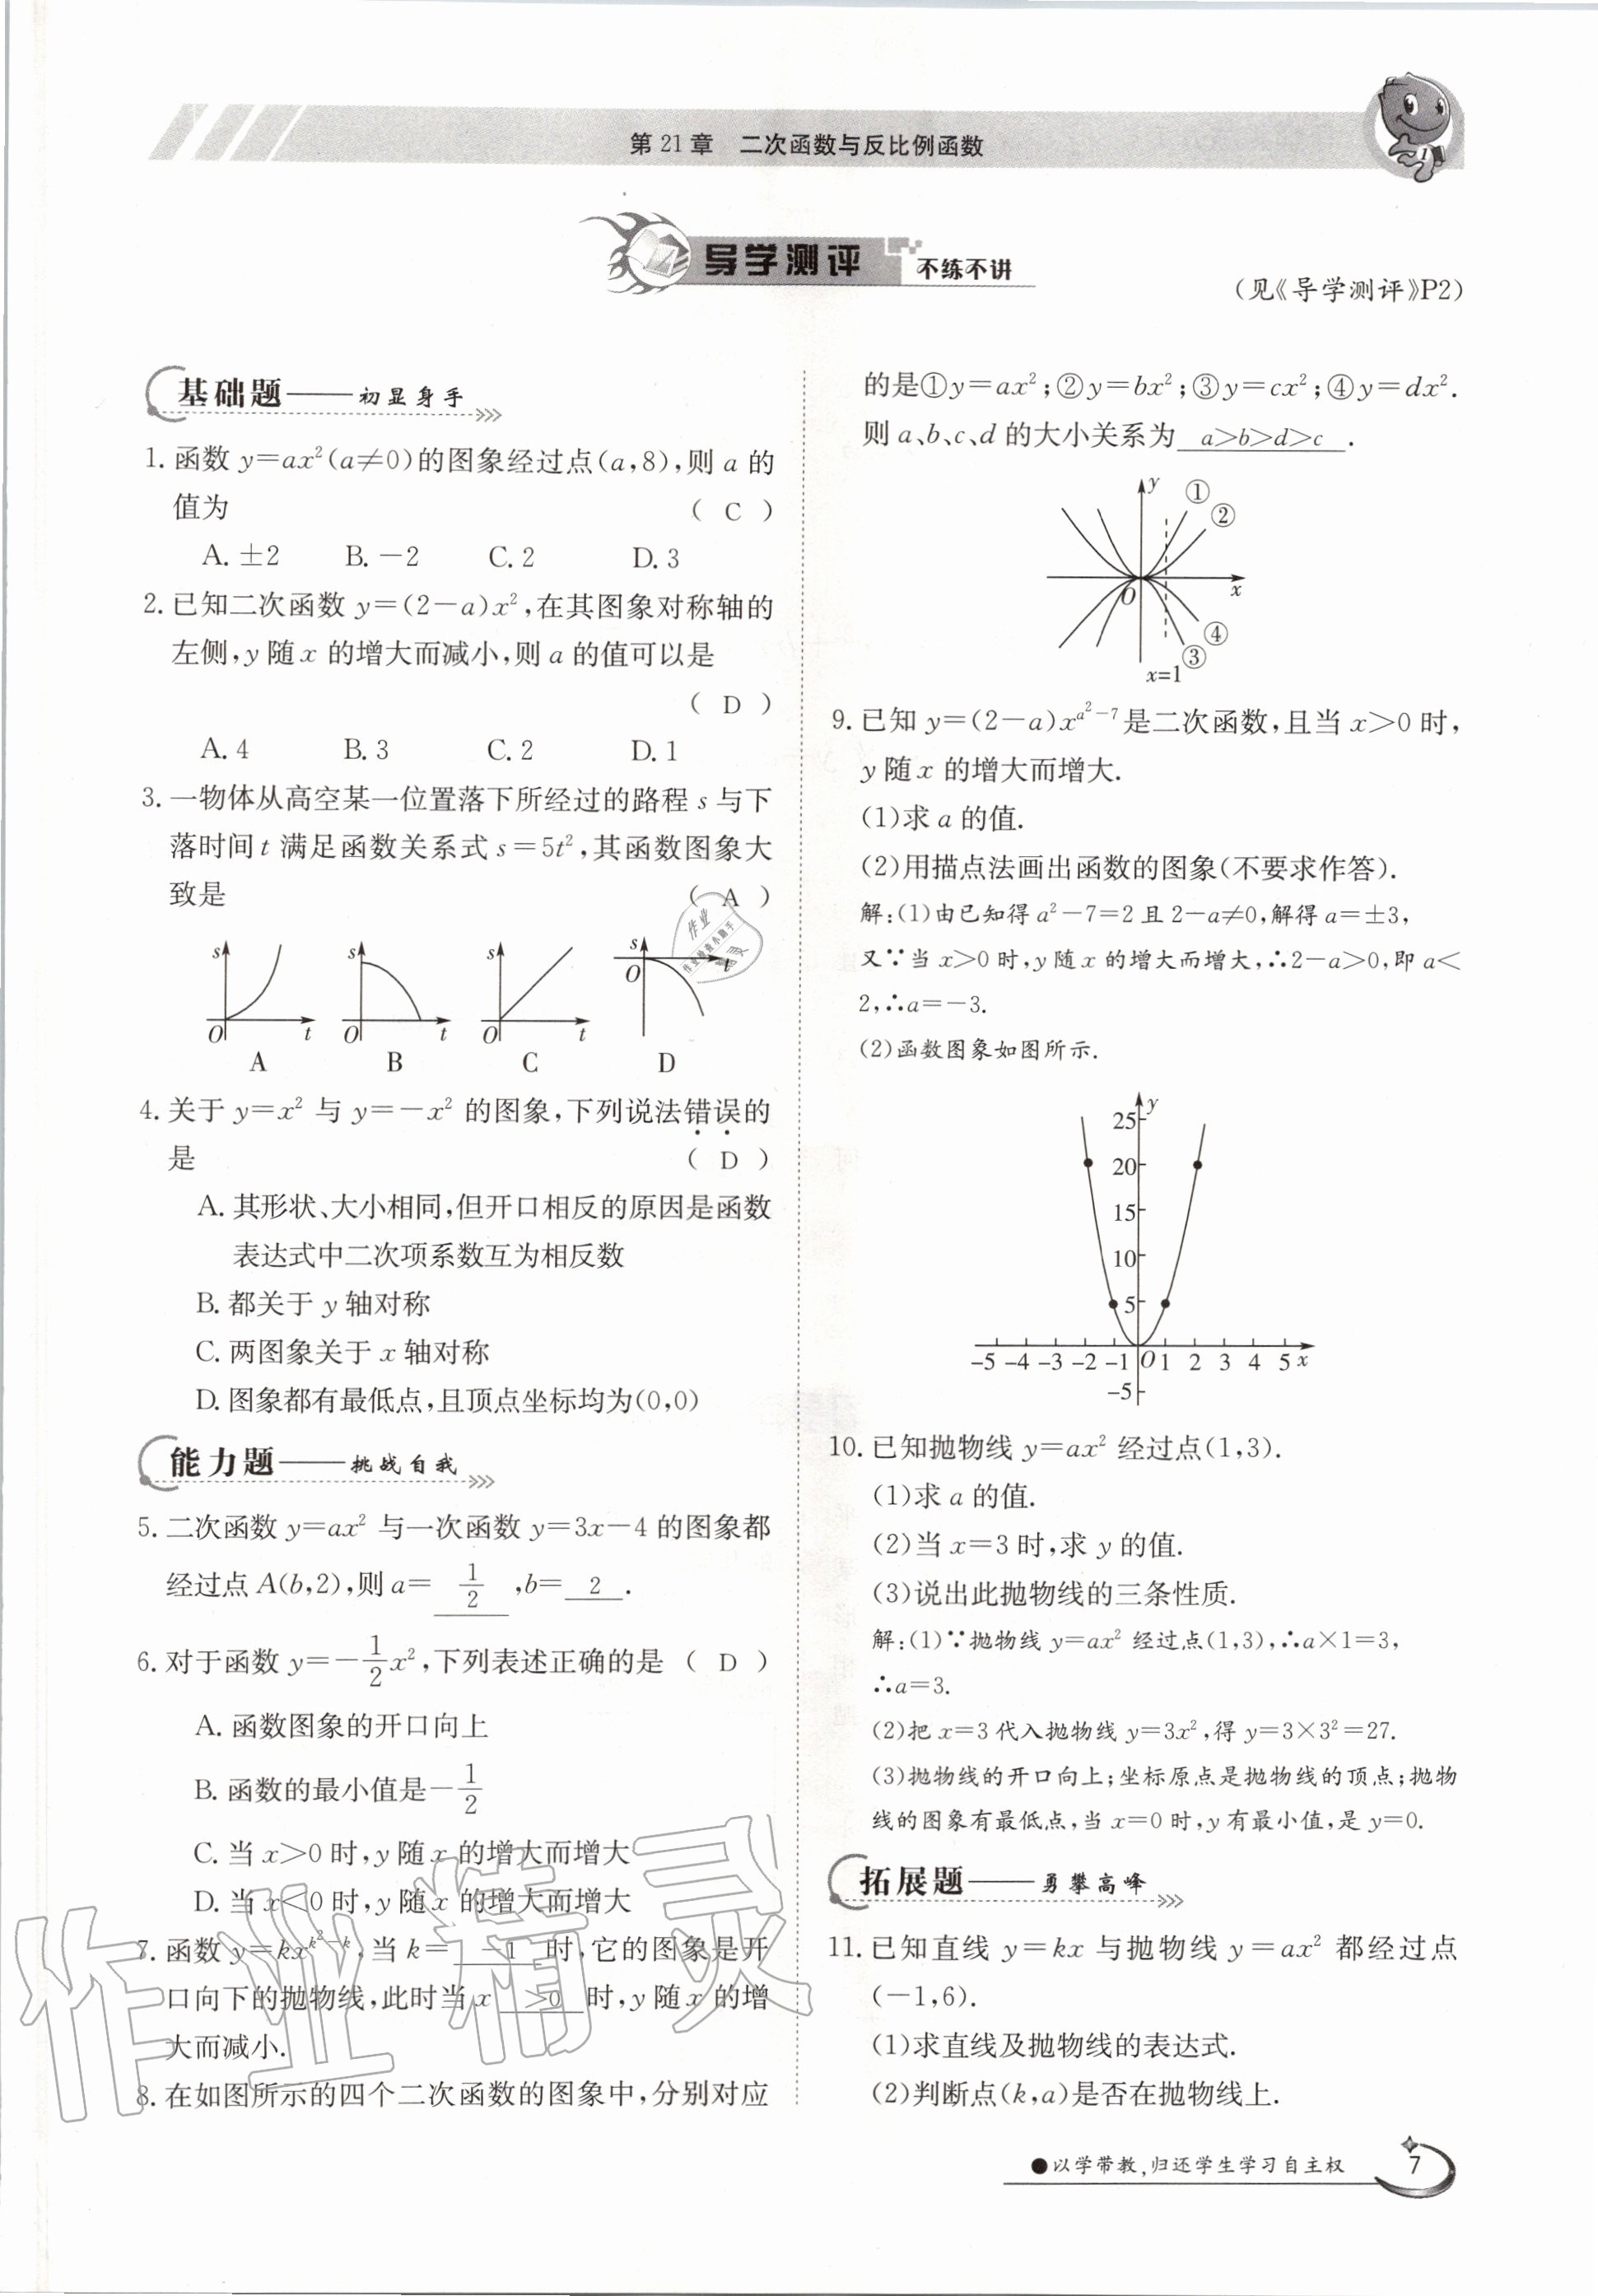 第21章 二次函数与反比例函数
导学测评 不练不讲
(见《导学测评》P2)
基础题——初显身手
1. 函数 y=ax²(a≠0)的图象经过点(a,8),则 a 的
值为 ( C )
A. ±2 B. －2 C. 2 D. 3
2. 已知二次函数 y=(2－a)x²,在其图象对称轴的
左侧,y 随 x 的增大而减小,则 a 的值可以是
( D )
A. 4 B. 3 C. 2 D. 1
3. 一物体从高空某一位置落下所经过的路程 s 与下
落时间 t 满足函数关系式 s=5t²,其函数图象大
致是 ( A )
s O t A
s O t B
s O t C
s O t D
4. 关于 y=x² 与 y=－x² 的图象,下列说法错误的
是 ( D )
A. 其形状、大小相同,但开口相反的原因是函数
表达式中二次项系数互为相反数
B. 都关于 y 轴对称
C. 两图象关于 x 轴对称
D. 图象都有最低点,且顶点坐标均为(0,0)
能力题——挑战自我
5. 二次函数 y=ax² 与一次函数 y=3x－4 的图象都
经过点 A(b,2),则 a= 1/2 ,b= 2 .
6. 对于函数 y=－1/2x²,下列表述正确的是 ( D )
A. 函数图象的开口向上
B. 函数的最小值是－1/2
C. 当 x>0 时,y 随 x 的增大而增大
D. 当 x<0 时,y 随 x 的增大而增大
7. 函数 y=kx^(k²－k),当 k= －1 时,它的图象是开
口向下的抛物线,此时当 x >0 时,y 随 x 的增
大而减小.
8. 在如图所示的四个二次函数的图象中,分别对应
的是①y=ax²;②y=bx²;③y=cx²;④y=dx².
则 a、b、c、d 的大小关系为 a>b>d>c .
y ① ② O x ④ ③ x=1
9. 已知 y=(2－a)x^(a²－7)是二次函数,且当 x>0 时,
y 随 x 的增大而增大.
(1)求 a 的值.
(2)用描点法画出函数的图象(不要求作答).
解:(1)由已知得 a²－7=2 且 2－a≠0,解得 a=±3,
又∵当 x>0 时,y 随 x 的增大而增大,∴2－a>0,即 a<
2,∴a=－3.
(2)函数图象如图所示.
y
25
20
15
10
5
-5 -4 -3 -2 -1 O 1 2 3 4 5 x
-5
10. 已知抛物线 y=ax² 经过点(1,3).
(1)求 a 的值.
(2)当 x=3 时,求 y 的值.
(3)说出此抛物线的三条性质.
解:(1)∵抛物线 y=ax² 经过点(1,3),∴a×1=3,
∴a=3.
(2)把 x=3 代入抛物线 y=3x²,得 y=3×3²=27.
(3)抛物线的开口向上;坐标原点是抛物线的顶点;抛物
线的图象有最低点,当 x=0 时,y 有最小值,是 y=0.
拓展题——勇攀高峰
11. 已知直线 y=kx 与抛物线 y=ax² 都经过点
(－1,6).
(1)求直线及抛物线的表达式.
(2)判断点(k,a)是否在抛物线上.
●以学带教,归还学生学习自主权
7
作业精灵